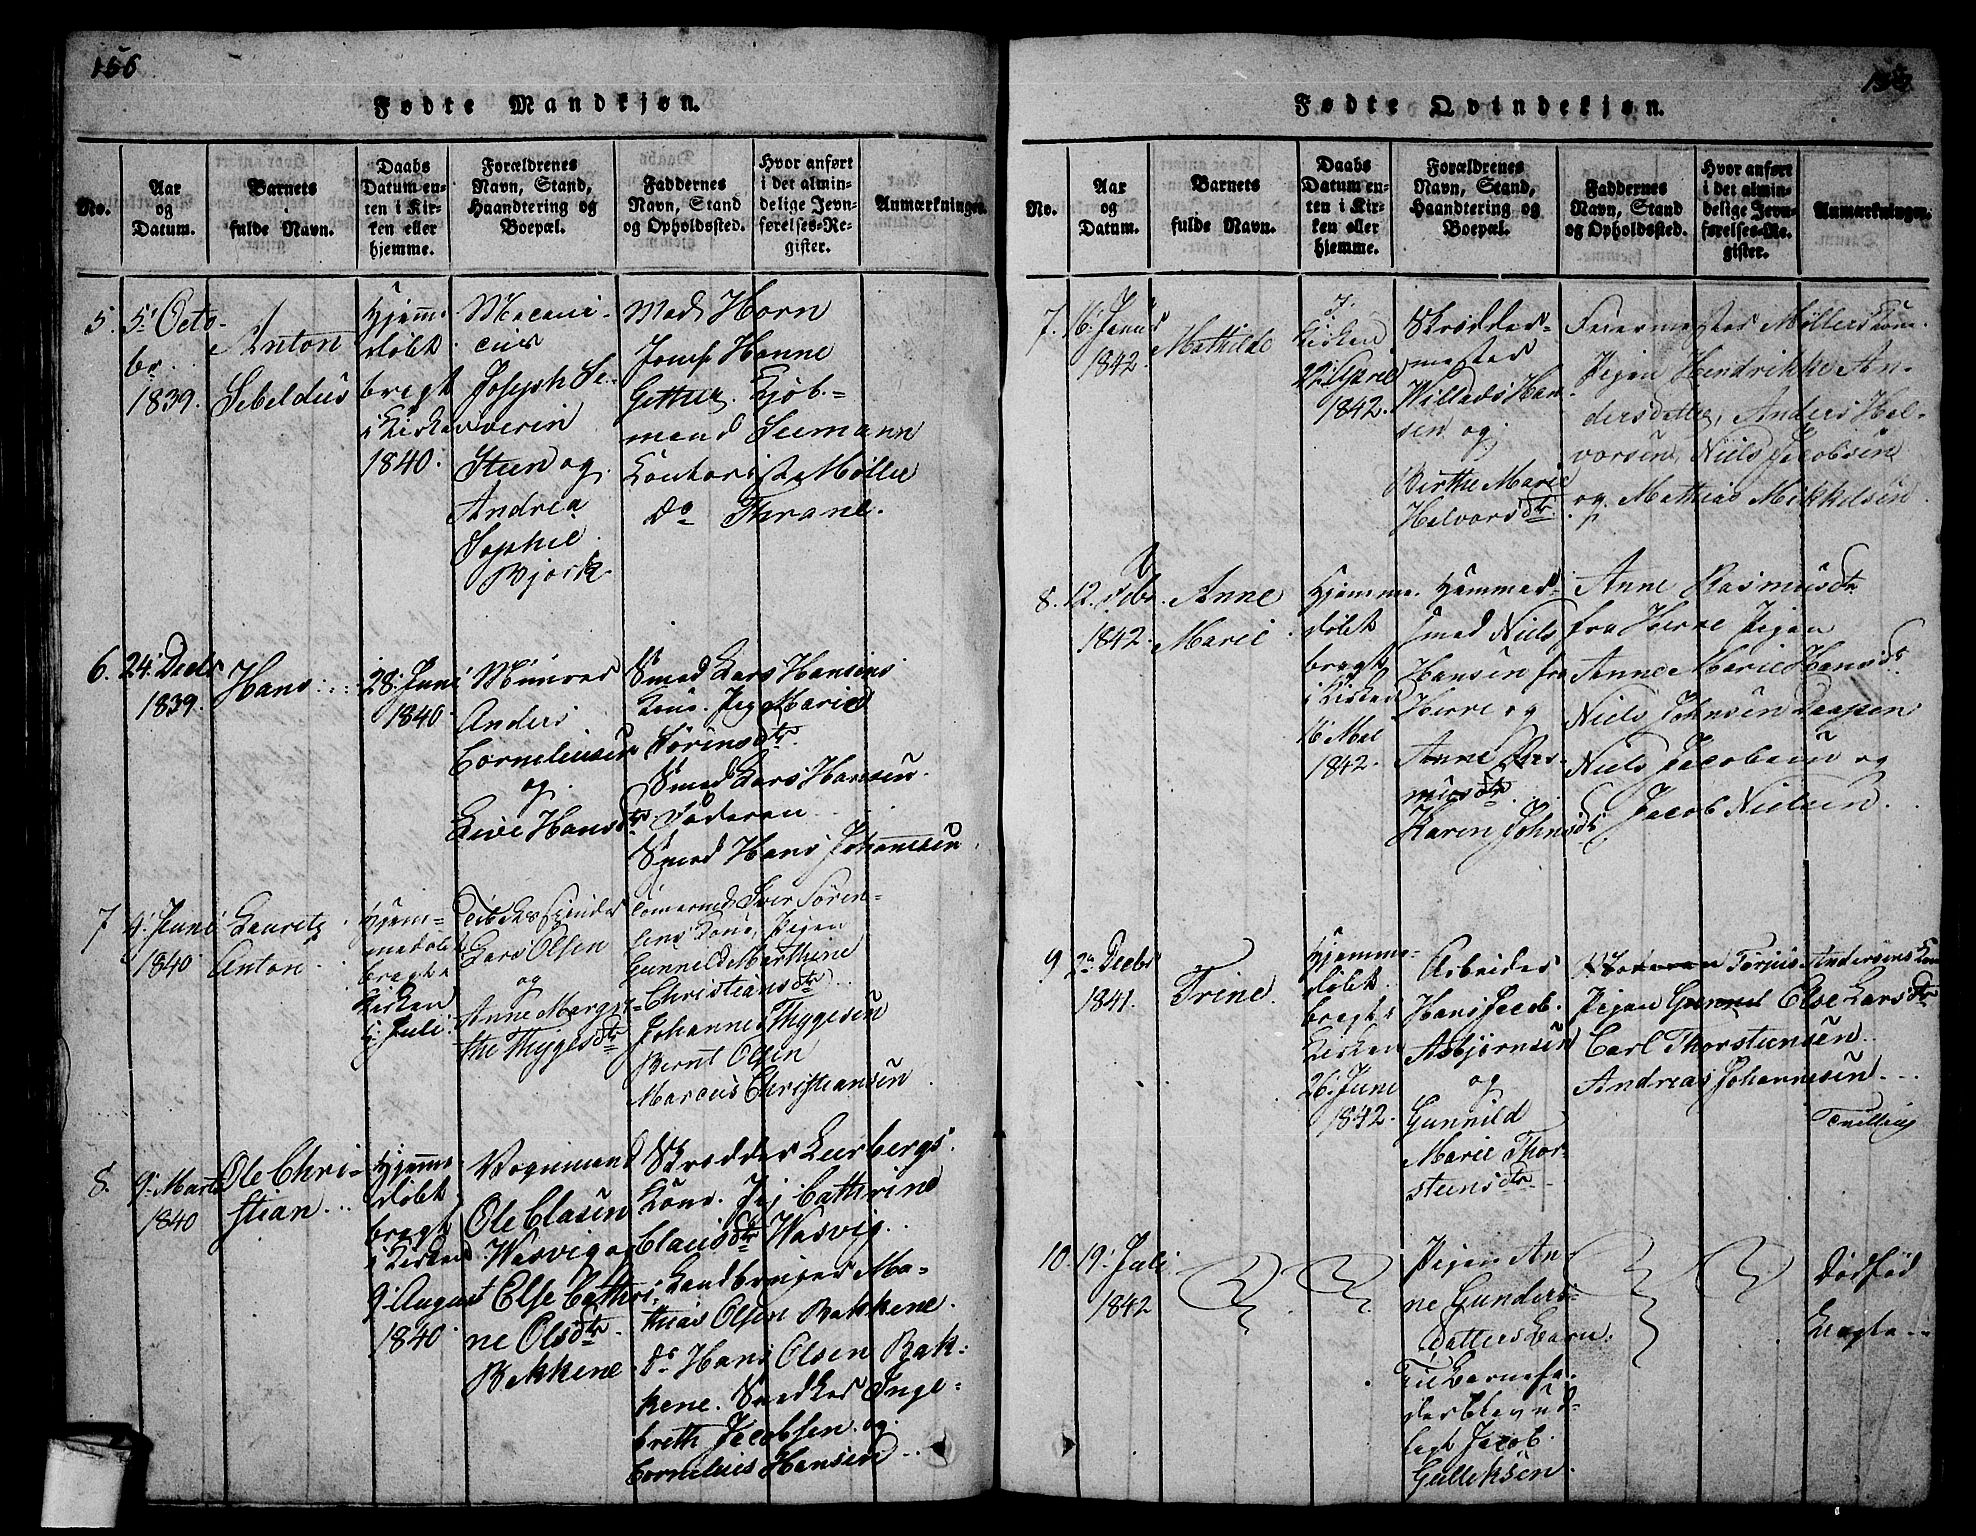 156
Fødte Mandkjøn.
No.
Aar og Datum.
Barnets fulde Navn.
Daabs Datum enten i Kirken eller hjemme.
Forældrenes Navn, Stand, Haandtering og Boepæl.
Faddernes Navn, Stand og Opholdssted.
Hvor anført i det almindelige Jevnførelses-Register.
Anmærkninger.
5.
5' Octo-
br
1839.
Anton
Sebeldus
Hjemme
døbt
bragt
i Kirken
1840.
Mecani-
cus
Joseph Se-
verin
Steen og
Andrea
Sophie
Bjørk
Mad Horn
Jomf Hanne
Kjøb-
mand Seemann
Contorist Møller
do Thrane.
6.
24' Decbr
1839.
Hans
28' Juni
1840.
Muurer
Anders
Corneliusen
og
Live Hansdtr
Smed Lars Hansens
Kone. Pig Marie
Sørensdtr.
Smed Lars Hansen.
Faderen
Smed Hans Johannesen
7
4' Juni
1840
Lauritz
Anton
Hjem-
medøbt
bragt i
Kirken
Juli
Lars Olsen
og
Anne Margre-
the Thygesdtr
Tømmermd Iver Søren-
sens Kone, Pigen
Gunnild Marthine
Christiansdtr
Johannes Thygesen
Bernt Olsen
Marcus Christiansen
8.
9' Marts
1840
Ole Chri-
stian
Hjemme
døbt
bragt
i Kirken
9' August
1840
Vognmand
Ole Clasen
Wasvig og
Else Cathri-
ne Olsdtr.
Bakkene
Skrædder Lurbergs
Kone. Pig Cathrine
Clausdtr Wasvig.
Landbruger Ma-
thias Olsen Bakkene.
do Hans Olsen Bak-
kene. Snedker Inge-
breth Jacobsen og
Cornelius Hansen
Fødte Qvindekjøn.
No.
Aar og Datum.
Barnets fulde Navn.
Daabs Datum enten i Kirken eller hjemme.
Forældrenes Navn, Stand, Haandtering og Boepæl.
Faddernes Navn, Stand og Opholdssted.
Hvor anført i det almindelige Jevnførelses-Register.
Anmærkninger.
7.
16' Janur
1842.
Mathilde
I
Kirken
22' April
1842.
Skrædder-
mester
Willads Han-
sen og
Birthe Marie
Halvorsdtr.
Feiermester Møllers Kone.
Pigen Hendrikke An-
dersdatter, Anders Hal-
vorsen, Niels Jacobsen
og Mathias Mikkelsen
8.
12. Febr.
1842.
Anne
Marie
Hjemme
døbt
bragt
i Kirken
16 Mai
1842.
Hammer-
smed Niels
Hansen fra
Herre og
Anne Ras-
musdtr.
Karen Johnsdtr
Anne Rasmusdtr
fra Herre Pigen
Anne Marie Hansdtr
Niels Johnsen
Niels Jacobsen og
Jacob Nielsen.
9
2' Decbr
1841.
Trine.
Hjemme-
døbt
bragt i
Kirken
26' June
1842.
Arbeider
Hans Jacob
Asbjørnsen
og
Gunnild
Marie Thor-
steensdtr
Andersens Kone
Pigen Gunnil Else Larsdtr
Carl Thorsteensen
Andreas Johannesen
Tvilling
10.
19' Juli
1842
Pigen An-
ne Gunders-
datters Barn.
Til Barnefa-
der blev ud-
lagt Jacob
Gulleksen.
Dødfød
Uægte